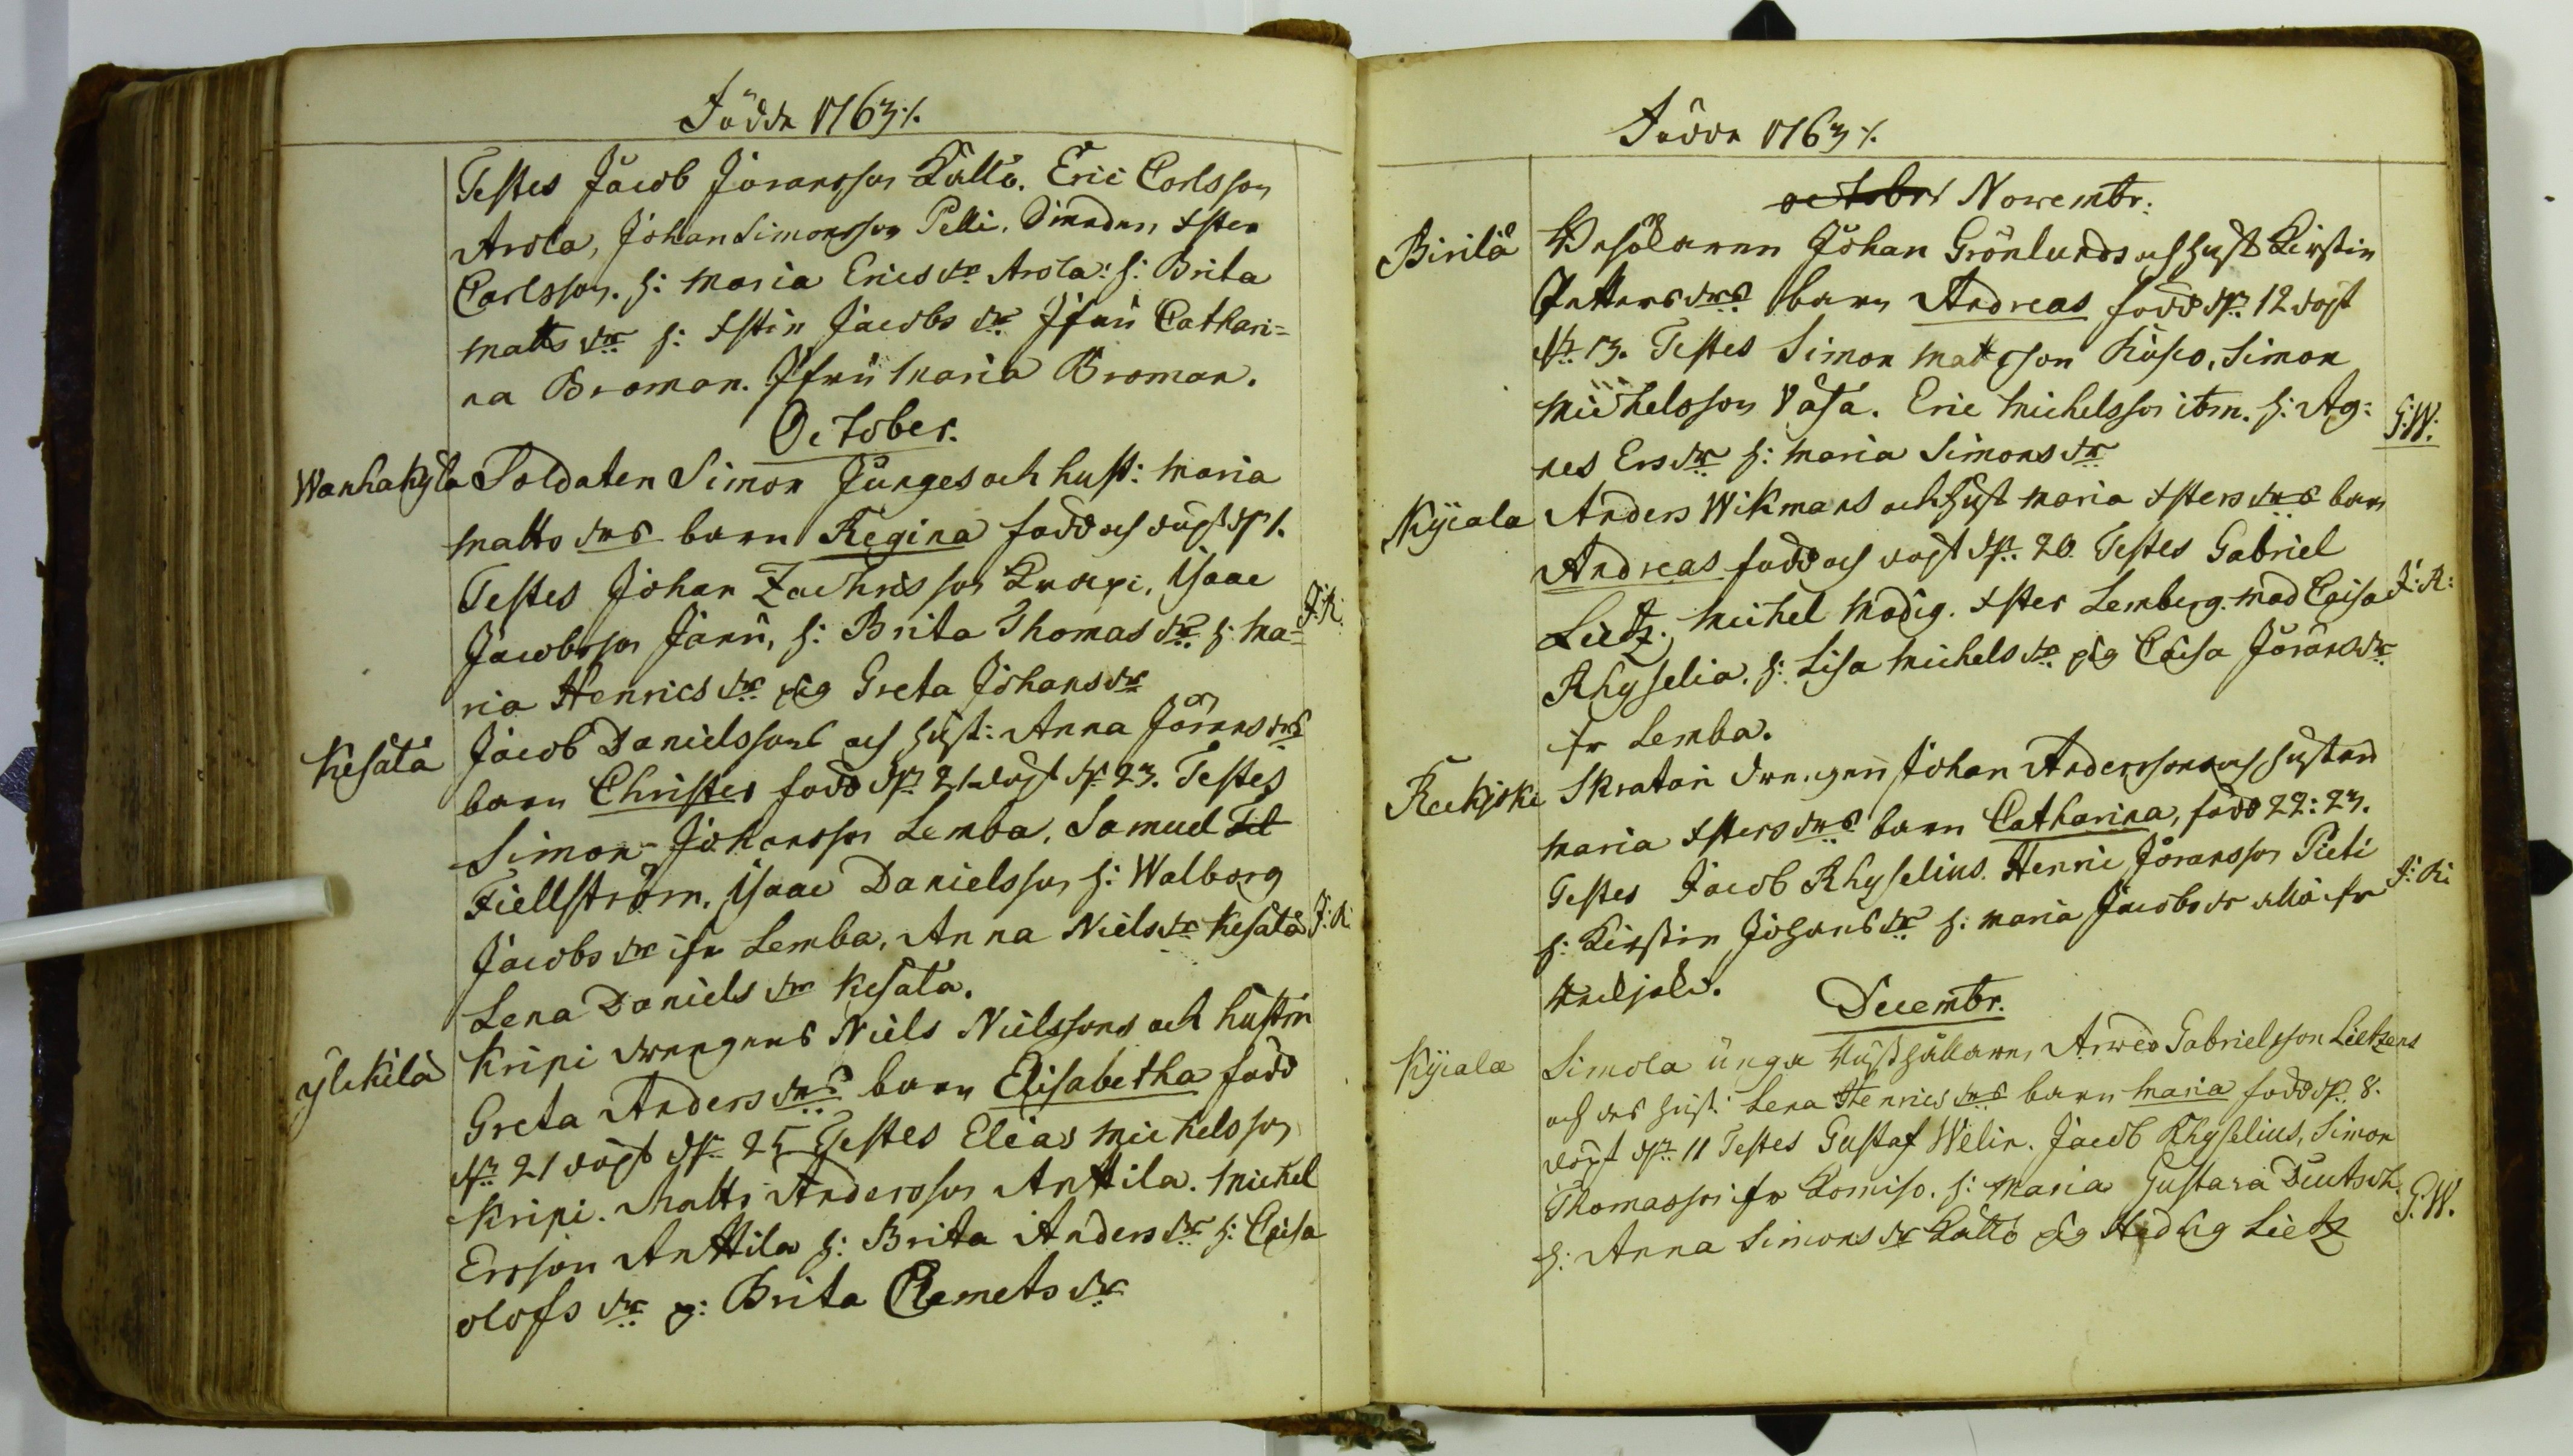 Födde 1763 ⁒.
Testes Jacob Joransson Kallo. Eric Carlsson
Arola, Johan Simonsson Pelli. Smeden Xster
Carlsson. h: Maria Erics dr Arola: h: Brita
Matts dr h: Xstin Jacobs dr Jfru Cathari=
na Broman. Jfru Maria Broman.
October.
Wanhakyla Soldaten Simon Junges och hust: Maria
Matts drs barn Regina född och döpt d. 1.
Testes Johan Zachrisson Knapi, Isaac
Jacobsson Janu, h: Brita Thomas dr h: Ma= F:R:
ria Henrics dr pig Greta Johans dr
Kesätä Jacob Danielssons och hust: Anna Jörans drs
barn Christer född d. 21 döpt d. 23. Testes
Simon Johansson Lemba, Samuel
Fiellström, Isaac Danielsson h: Walborg
Jacobs dr ifr Lemba, Anna Niels dr Kesätä F:R:
Lena Daniels dr Kesäta.
Ylikilä Kripi drengens Niels Nielssons och hustru
Greta Anders drs barn Elisabetha född
d. 21 döpt d. 25 Testes Elias Michelsson
Kripi. Matts Andersson Anttila. Michel
Ersson Anttila h: Brita Anders dr h: Caisa
Olofs dr p: Brita Clemets dr
Födde 1763 ⁒.
october Novembr:
Birilä Johan Grönlunds och hust Kirstin
Petters drs barn Andreas född d. 12 döpt
d. 13. Testes Simon Mattsson Simon
Michelsson Väsa. Eric Michelsson itm. h: Ag= G:W:
nes Ers dr h: Maria Simons dr
Kyiala Anders Wikmans och hust Maria Xsters drs barn
Andreas född och döpt d. 20. Testes Gabriel
Lietz. Michel Modig. Xster Lemberg. Mad Caisa F:R:
Rhyselia. h: Lisa Michels dr pig Caisa Jörans dr
ifr Lemba.
Reckioki Skratari drengen Johan Anderssons och hustru
Maria Xsters drs barn Catharina, född 22: 23.
Testes Jacob Rhyselius. Henric Joransson Pieti F:R:
h: Kirstin Johans dr h: Maria Jacobs dr alla ifr
Decembr.
Kyiala Simola unga hushållaren Arwed Gabrielsson Lietzens
och des hust: Lena Henrics drs barn Maria född d. 8.
döpt d. 11 Testes Gustaf Welin. Jacob Rhyselius, Simon
Thomasson ifr Komiso. h: Maria Gustava Deutsch.
h: Anna Simons dr Kallo pig Hedvig Lietz G:W.